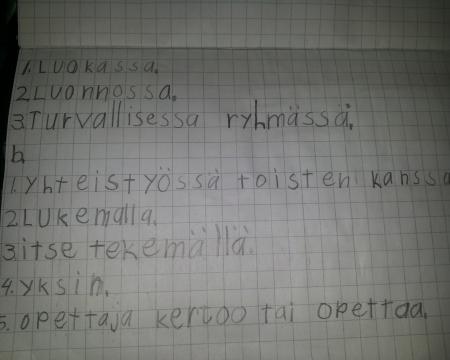 1. Luokassa.
2. Luonnossa.
3. Turvallisessa ryhmässä.
b.
1. yhteistyössä toisten kanssa
2. Lukemalla.
3 itse tekemällä.
4. yksin.
5. opettaja kertoo tai opettaa.